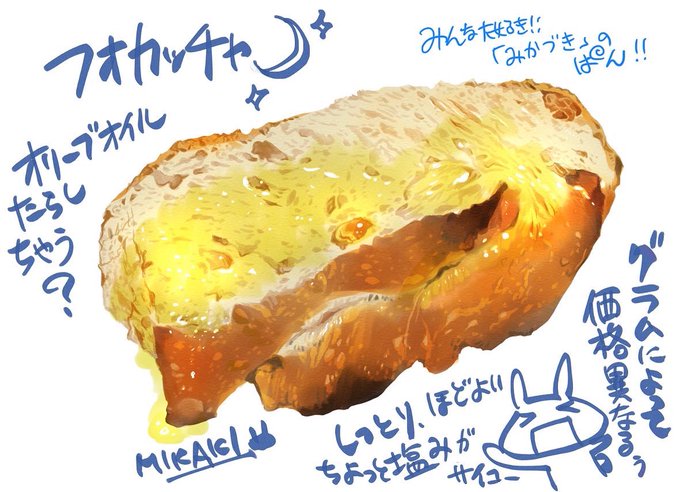 フォカッチャ
みんな大好き!!
「みかづき」の
ぱん!!
オリーブオイル
たらし
ちゃう?
グラムによって
価格異なるぅ
しっとり、ほどよい
ちょっと塩みが
サイコー
MIKAKI